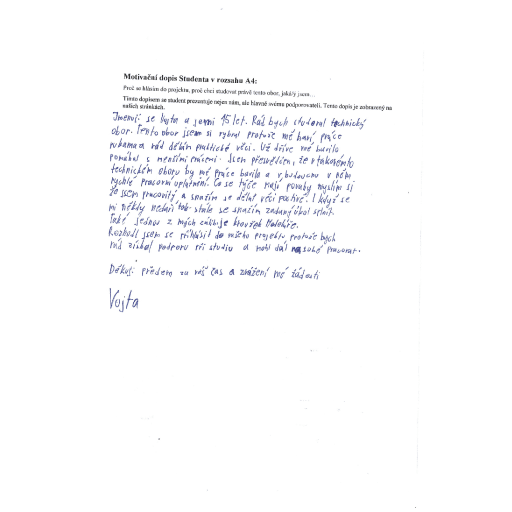 Motivační dopis Studenta v rozsahu A4:
Proč se hlásím do projektu, proč chci studovat právě tento obor, jaká/ý jsem…
Tímto dopisem se student prezentuje nejen nám, ale hlavně svému podporovateli. Tento dopis je zobrazený na
našich stránkách.
Jmenuji se Vojta a je mi 15 let. Rád bych studoval technický
obor. Tento obor jsem si vybral protože mě baví práce
rukama a rád dělám praktické věci. Už dříve mě bavilo
pomáhat s menšími pracemi. Jsem přesvědčen, že v takovémto
technickém oboru by mě práce bavila a v budoucnu v něm
rychlé pracovní uplatnění. Co se týče mojí povahy myslím si
že jsem pracovitý a snažím se dělat věci poctivě. I když se
mi někdy nedaří tak stále se snažím zadaný úkol splnit.
Také jednou z mých zálib je kroužek
Rozhodl jsem se přihlásit do vašeho projektu protože bych
rád získal podporu při studiu a mohl dál na sobě pracovat.
Děkuji předem za váš čas a zvážení mé žádosti
Vojta